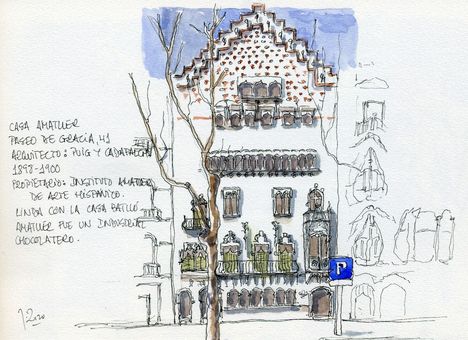 CASA AMATLLER
PASEO DE GRACIA, 41
ARQUITECTO: PUIG Y CADAFALCH
1898-1900
PROPIETARIO: INSTITUTO AMATLLER
DE ARTE HISPÁNICO.
LINDA CON LA CASA BATLLÓ
AMATLLER FUE UN INDUSTRIAL
CHOCOLATERO.
P